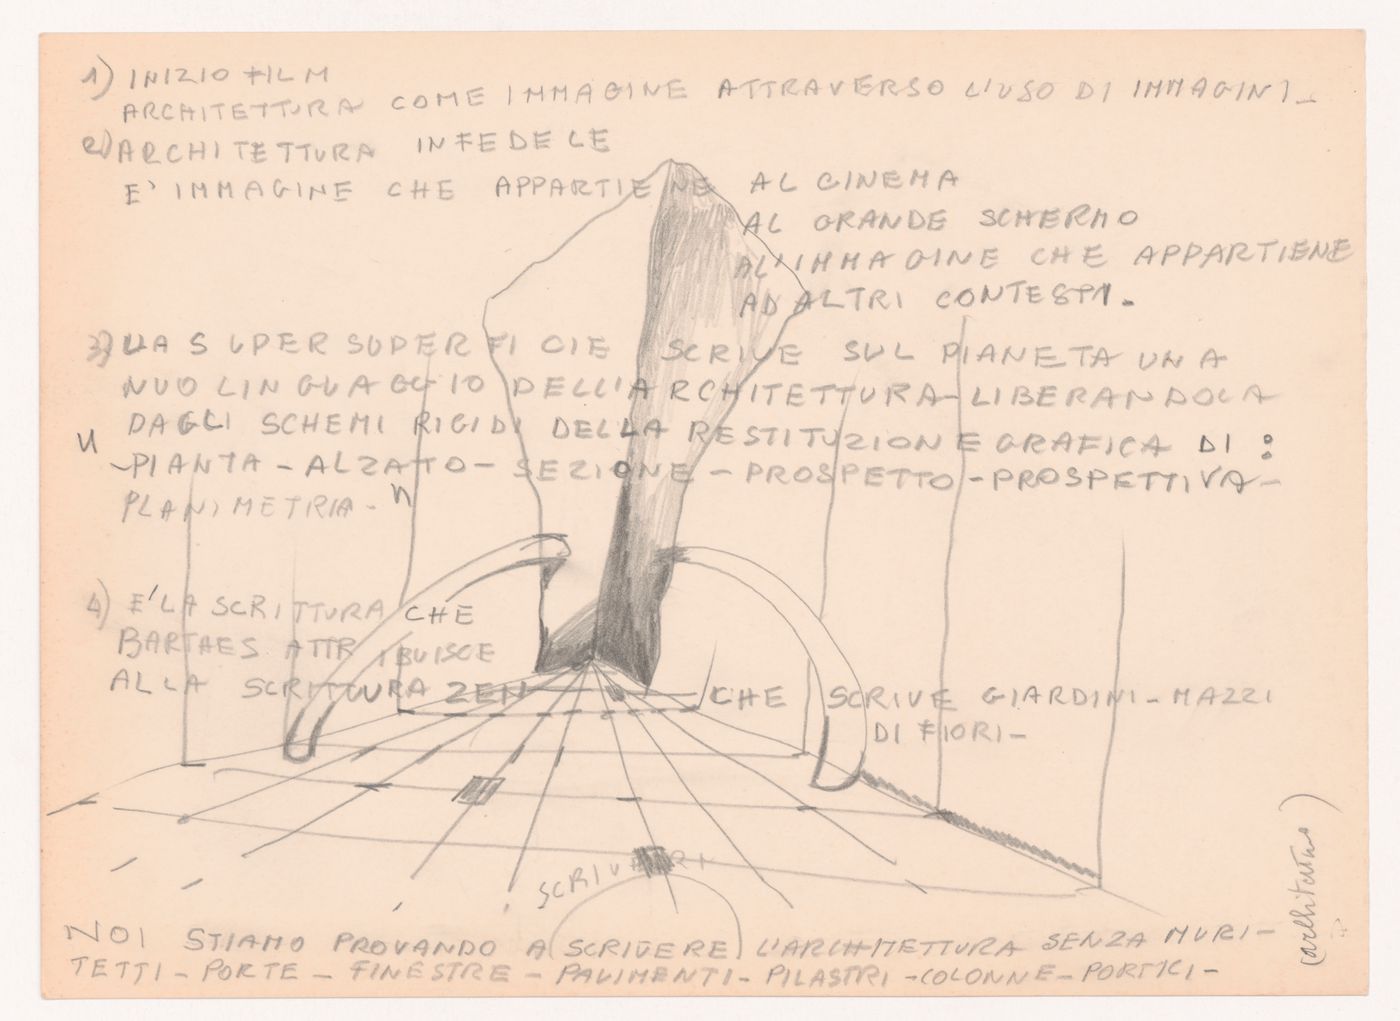 1) INIZIO FILM
ARCHITETTURA COME IMMAGINE ATTRAVERSO L'USO DI IMMAGINI_
2) ARCHITETTURA INFEDELE
E' IMMAGINE CHE APPARTIENE AL CINEMA
AL GRANDE SCHERMO
ALL'IMMAGINE CHE APPARTIENE
AD ALTRI CONTESTI.
3) LA SUPERSUPERFICIE SCRIVE SUL PIANETA UNA
NUO LINGUAGGIO DELL'ARCHITETTURA-LIBERANDOLA
DAGLI SCHEMI RIGIDI DELLA RESTITUZIONE GRAFICA DI :
" -PIANTA - ALZATO - SEZIONE - PROSPETTO - PROSPETTIVA -
PLANIMETRIA - "
4) E' LA SCRITTURA CHE
BARTHES ATTRIBUISCE
ALLA SCRITTURA ZEN CHE SCRIVE GIARDINI - MAZZI
DI FIORI -
NOI STIAMO PROVANDO A (SCRIVERE) L'ARCHITETTURA SENZA MURI -
TETTI - PORTE - FINESTRE - PAVIMENTI - PILASTRI - COLONNE - PORTICI -